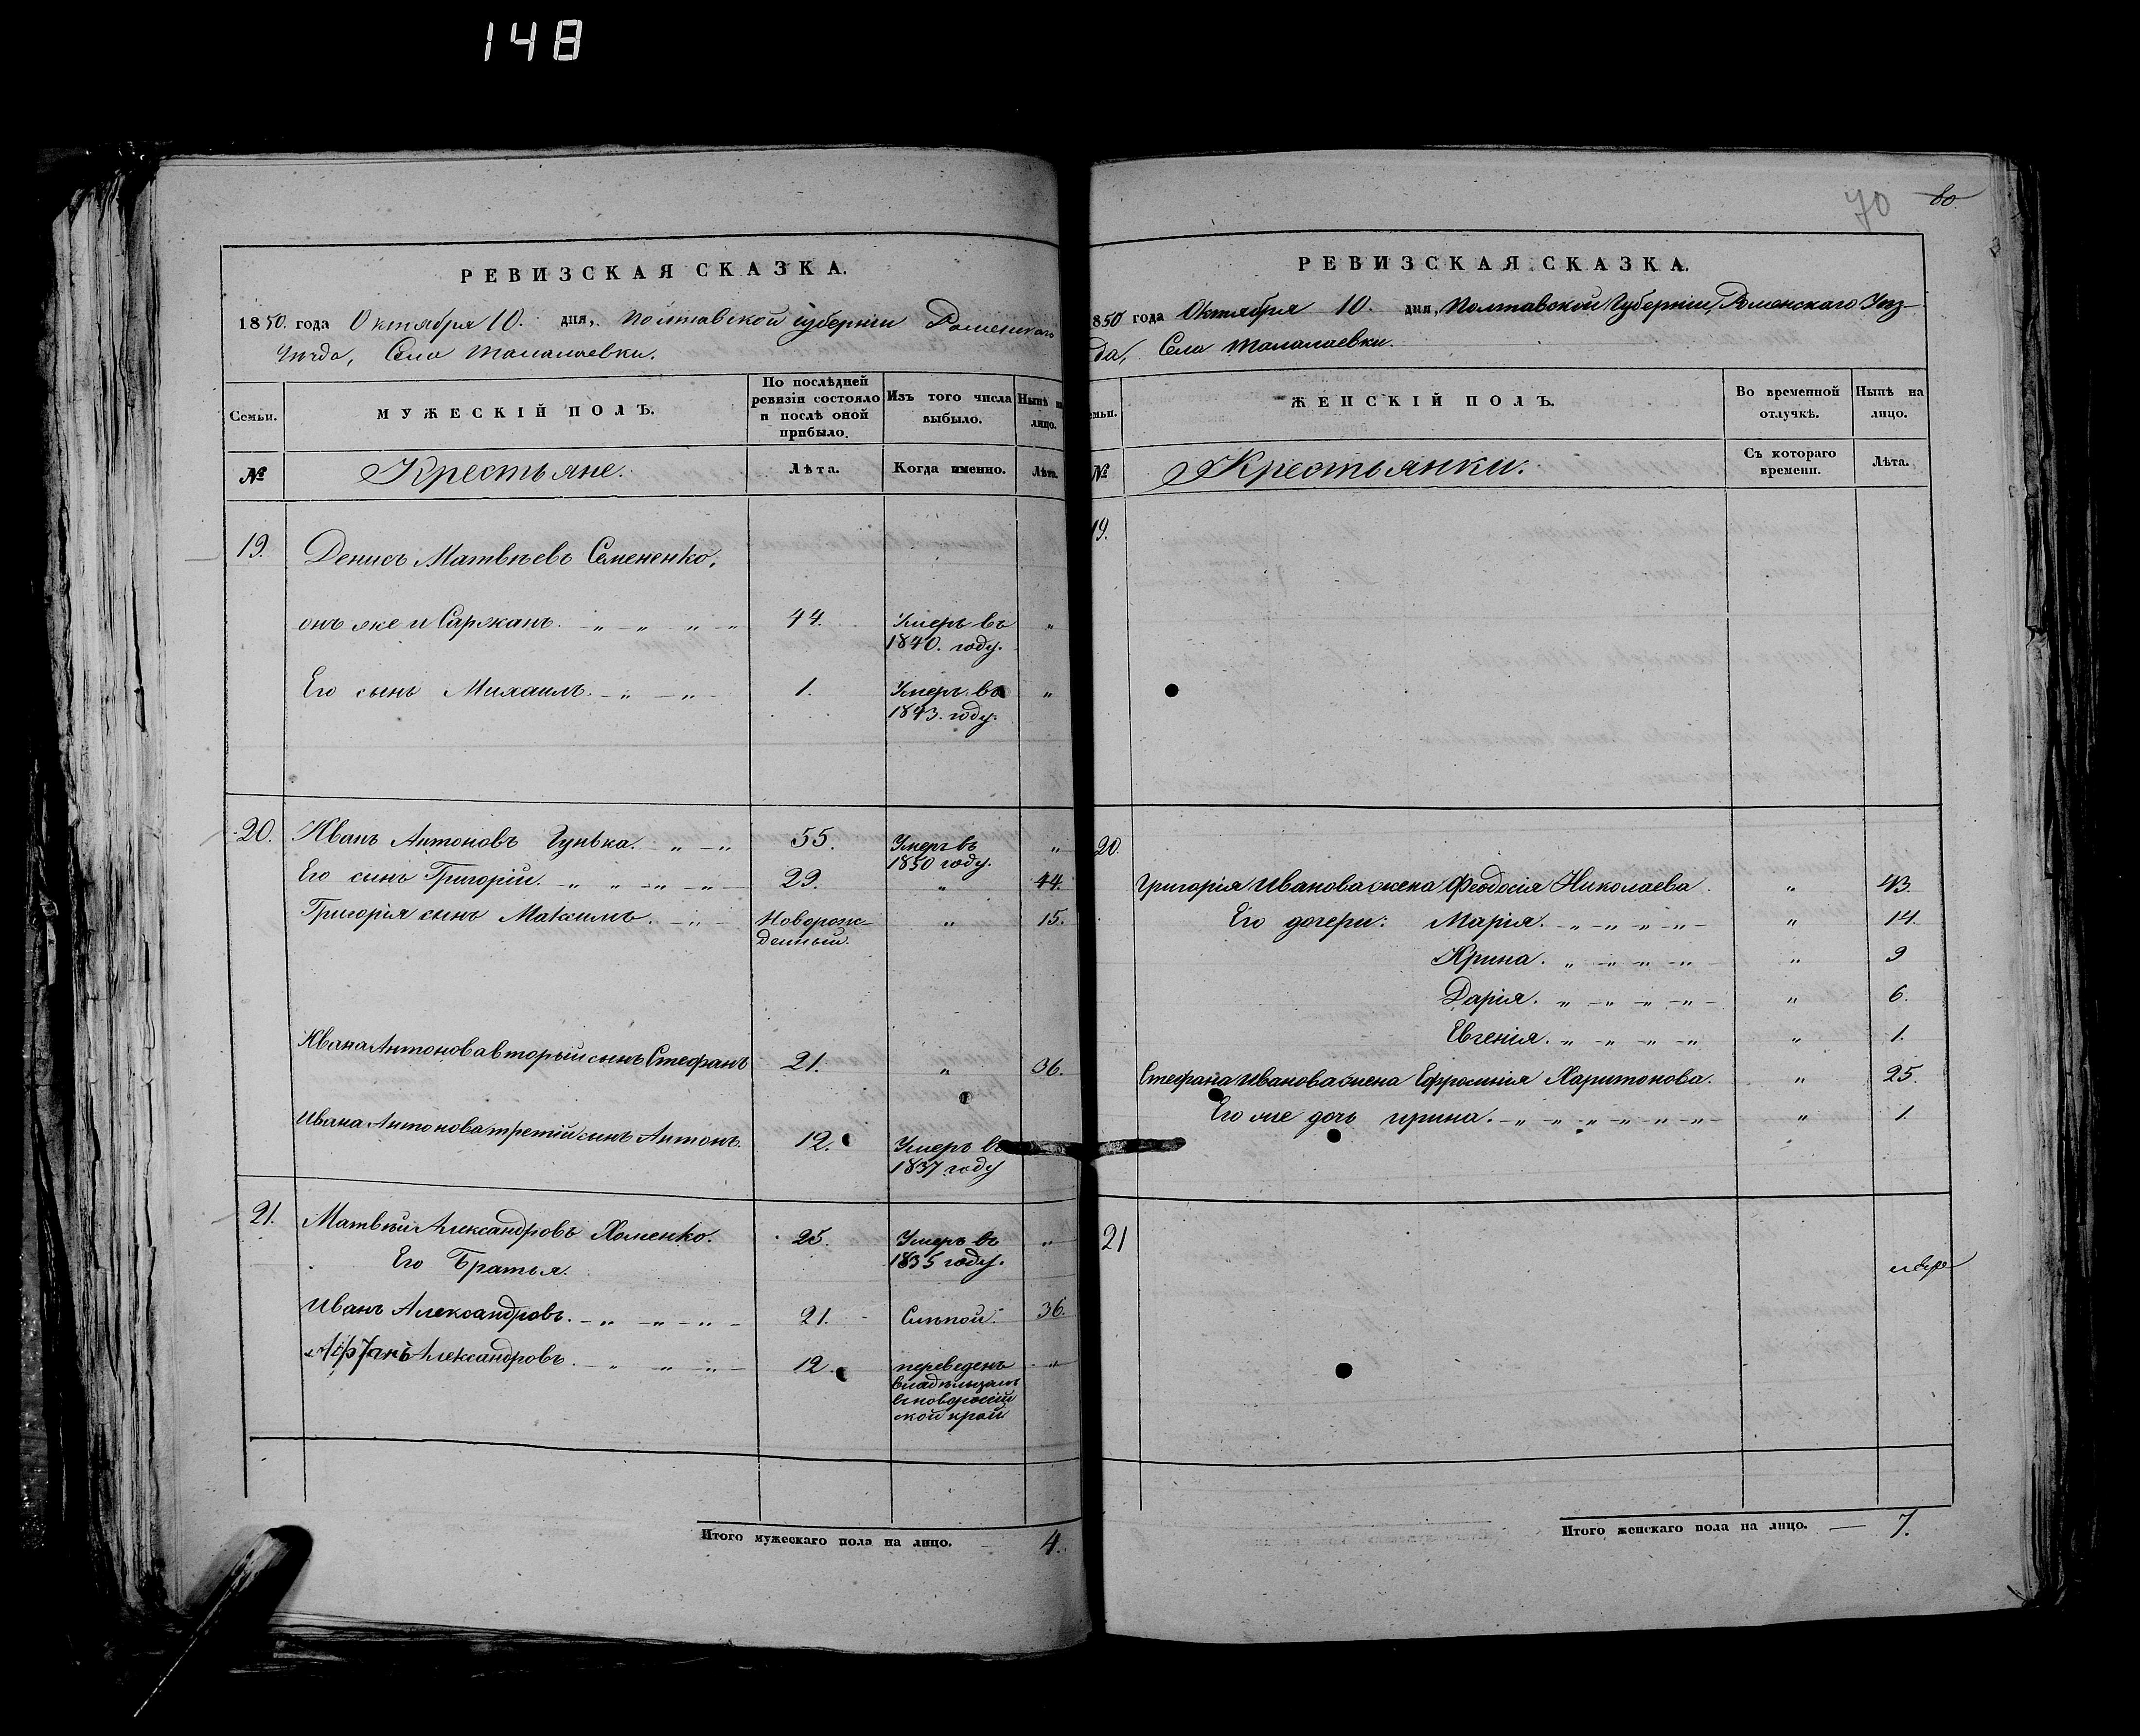 148
РЕВИЗСКАЯ СКАЗКА.
1850. года Октября 10. дня, Полтавской губернии Роменскаго
Уѣзда, Села Талалаевки.
Семьи. МУЖЕСКІЙ ПОЛЪ. По послѣдней ревизіи состояло и послѣ оной прибыло. Изъ того числа выбыло. Нынѣ на лицо.
№ Крестьяне. Лѣта. Когда именно. Лѣта.
19. Денисъ Матвѣевъ Семененко,
онъ же и Саржанъ. „ „ „ „ 44. Умеръ въ „
1840. году.
Его сынъ Михаилъ. „ „ 1. Умеръ въ „
1843. году.
20. Иванъ Антоновъ Гунька. „ „ 55. Умеръ въ „
1850 году.
Его сынъ Григорій. „ „ „ „ 29. „ 44.
Григорія сынъ Максимъ. „ Новорож- „ 15.
денный.
Ивана Антонова вторый сынъ Стефанъ 21. „ 36.
Ивана Антонова третій сынъ Антонъ. 12. Умеръ въ
1837 году
21. Матвѣй Александровъ Хоменко. 25. Умеръ въ „
1835 году.
Его Братья.
Иванъ Александровъ. „ „ „ 21. Слѣпой. 36.
Александровъ. „ „ „ 12. переведенъ „
владѣльцамъ
въ новороссій
ской край
Итого мужескаго пола на лицо. 4.
70 60
РЕВИЗСКАЯ СКАЗКА.
850 года Октября 10. дня, Полтавской Губерніи, Роменскаго Уѣз-
да, Села Талалаевки.
емьи. ЖЕНСКІЙ ПОЛЪ. Во временной отлучкѣ. Нынѣ на лицо.
№ Крестьянки. Съ котораго времени. Лѣта.
19.
20.
Григорія Иванова жена Феодосія Николаева. „ 43
Его дочери: Марія. „ „ „ „ „ 14.
Ирина. „ „ „ „ „ 9
Дарія. „ „ „ „ „ 6.
Евгенія. „ „ „ „ „ 1.
Стефана Иванова жена Ефросинія Харитонова. „ 25.
Его же дочь ирина. „ „ „ „ „ „ „ 1.
21
Итого женскаго пола на лицо. — 7.